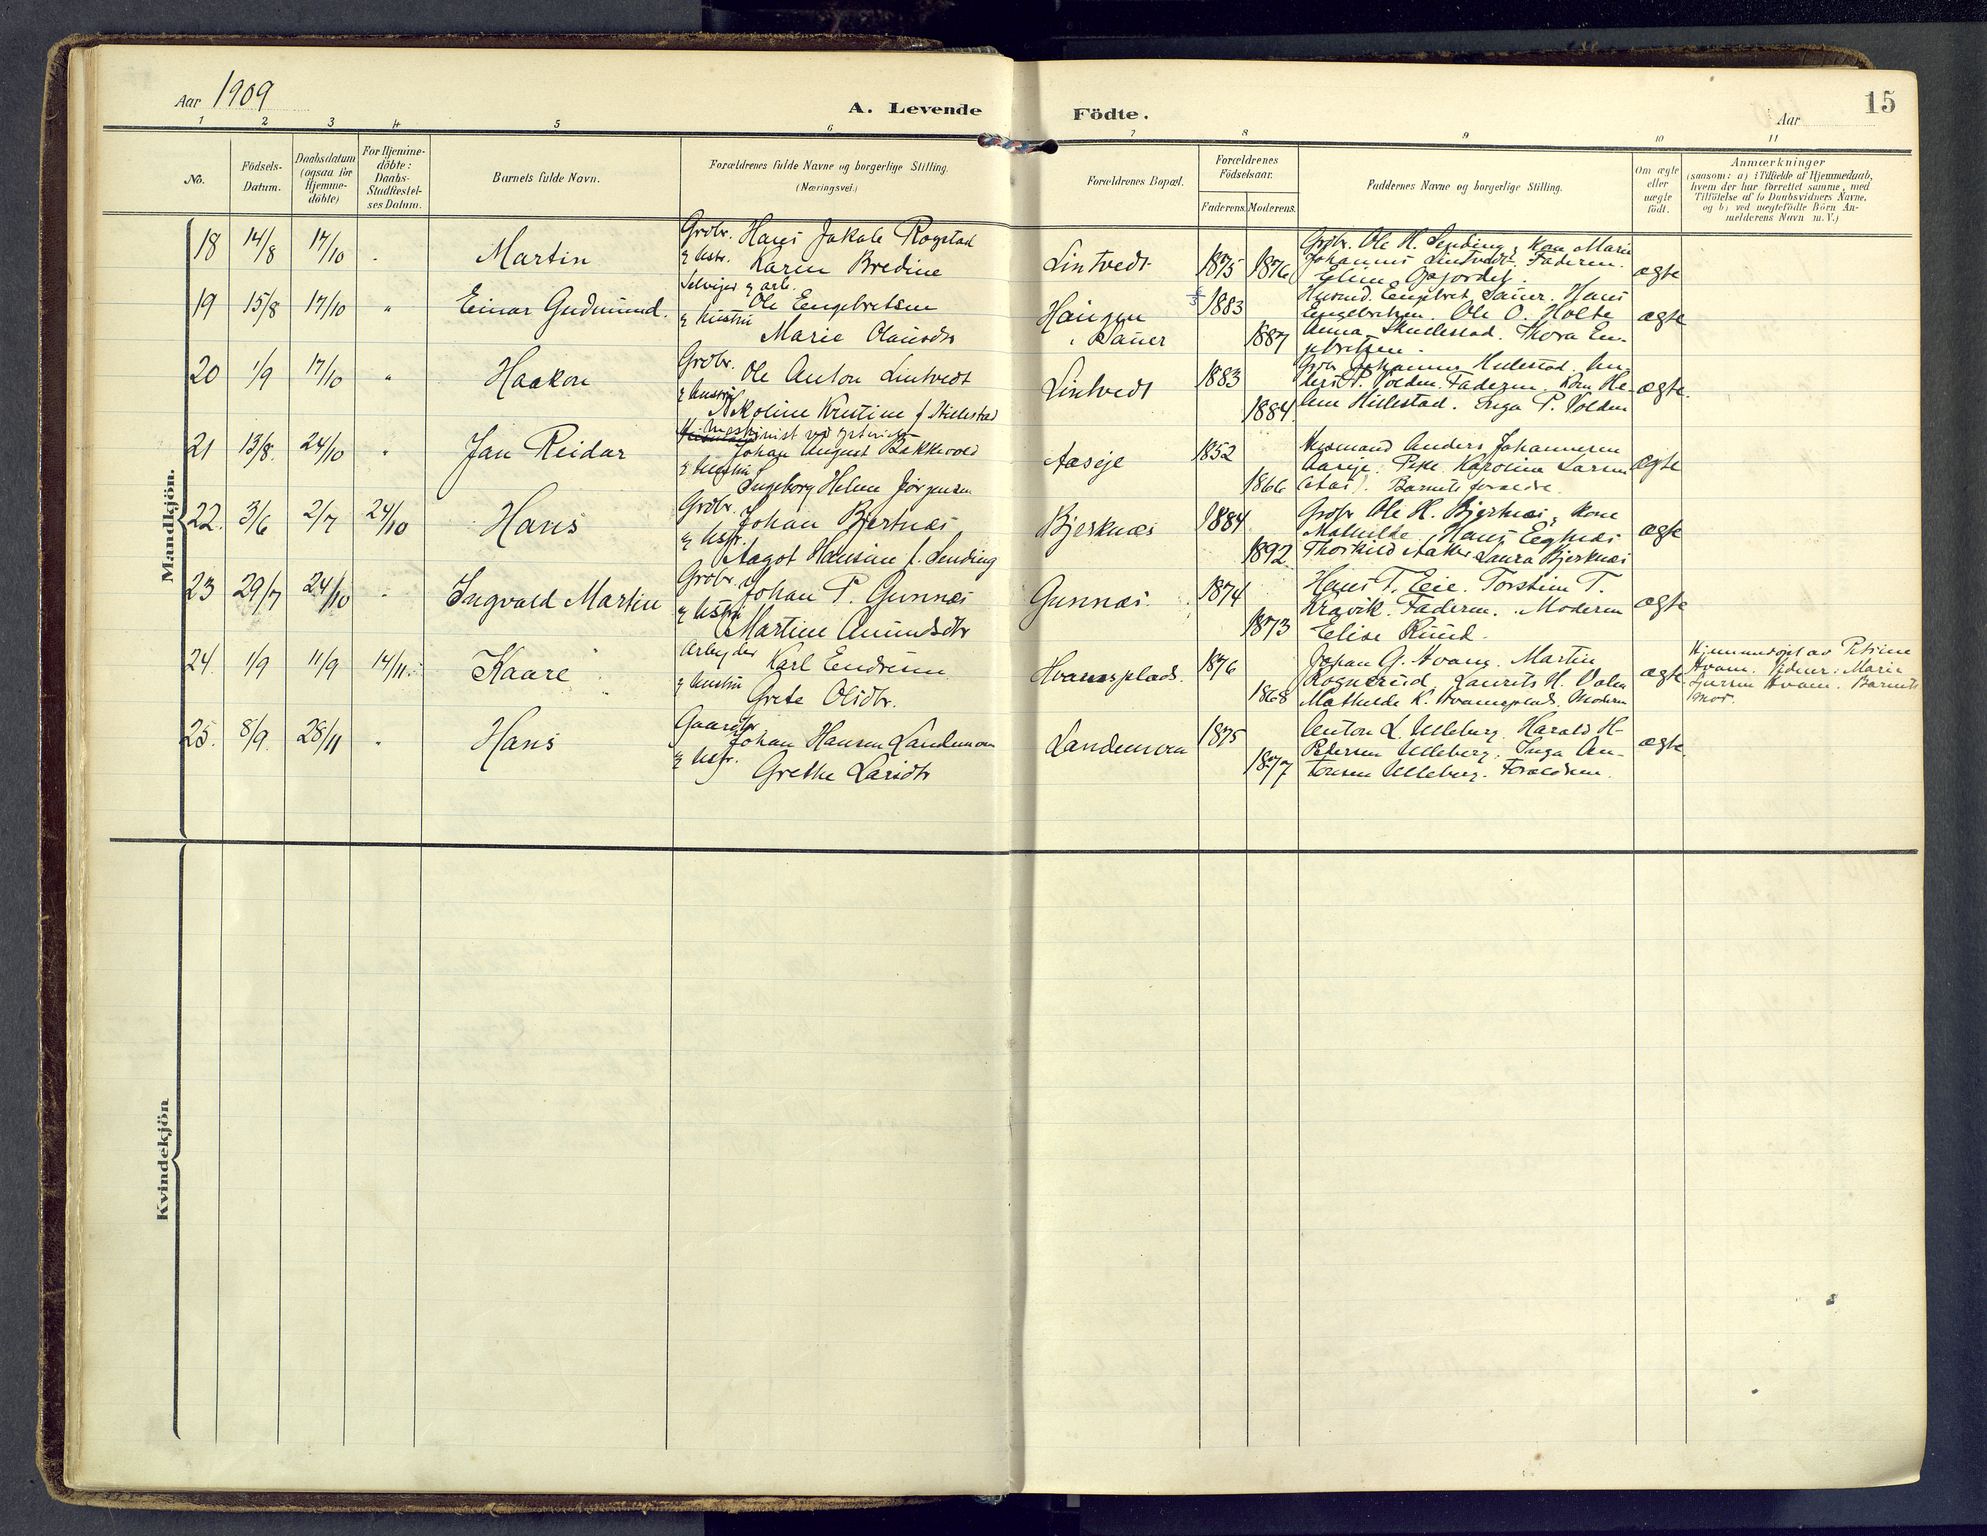 Aar 1909
A. Levende Födte.
Aar
15
1 2 3 4 5 6 7 8 9 10 11
No.
Födsels-
Datum.
Daabsdatum
(ogsaa for
Hjemme-
döbte)
For Hjemme-
döbte:
Daabs-
Stadfæstel-
ses Datum.
Barnets fulde Navn.
Forældrenes fulde Navne og borgerlige Stilling.
(Næringsvei.)
Forældrenes Bopæl.
Forældrenes
Födselsaar.
Faderens. Moderens.
Faddernes Navne og borgerlige Stilling.
Om ægte
eller
uægte
födt.
Anmærkninger
(saasom: a) i Tilfælde af Hjemmedaab,
hvem der har forrettet samme, med
Tilföielse af to Daabsvidners Navne,
og b) ved uægtefödte Börn An-
melderens Navn m. V.)
Mandkjön.
18 14/8 17/10 Martin
Grdbr. Hans Jakob Rogstad
& Hstr. Karen Bredine
Lintvedt 1875 1876
Grdbr. Ole H. Sending, Kone Marie
Johannes Lintvedt. Faderen.
ægte
19 15/8 17/10 " Einar Gudmund.
Selveier & arb.
Ole Engebretsen
& Hustru
Marie Olausdtr
Haugen
i Sauer
1883
1887
Husmd. Engebret Sauer. Hans
Engebretsen. Ole O. Holte
Anna Skullestad. Thora En-
gebretsen.
ægte
20 1/9 17/10 " Haakon
Grdbr.
Ole Anton Lintvedt
& Hustru
Nikoline Kristine f. Hillestad
Lintvedt
1883
1884
Grdbr Johannes Hillestad. An-
ders P. Volden. Faderen. Kone He-
lene Hillestad. Inga P. Volden
ægte.
21 13/8. 24/10 " Jan Reidar
Maskinist ved
Johan August Bakkevold
& Hustru
Ingeborg Helene Jørgensen
Aaseje
1852
1866
Husmand Anders Johannesen
Aaseje. Pike Karoline Larsen
Barnets forældre.
ægte
22. 3/6 2/7 24/10 Hans
Grdbr.
Johan Bjerknæs
& Hstr.
Aagot Hansine f. Sending
Bjerknæs
1884
1892
Grdbr Ole H. Bjerknæs, Kone
Mathilde. Hans
Laura Bjerknæs
ægte
23 29/7 24/10 " Ingvald Martin
Grdbr.
Johan P. Gunnæs
& Hstru
Martine Amundsdtr
Gunnæs.
1874
1873
Hans T. Eie. Torstein T.
Kravik. Faderen. Moderen
Elise Ruud.
ægte
24. 1/9 11/9 14/11. Kaare
Arbejder
Karl Endresen
& Hustru
Grete Olidtr.
Hvamsplads.
1876
1868
Johan G. Hvam. Martin
Rognerud. Laurits H. Dalen
Mathilde K. Hvamsplads. Moderen
ægte
Hjemmedøpt av Petrine
Hvam. Vidner. Marie
Hvam. Barnets
mor.
25. 8/9. 28/11 " Hans
Gaardbr
Johan Hansen Landemoen
& Hstr.
Grethe Larsdtr
Landemoen
1875
1877
Anton L. Ulleberg. Harald H.
Pedersen Ulleberg. Inga An-
tonsen Ulleberg. Forældrene.
ægte.
Kvindekjön